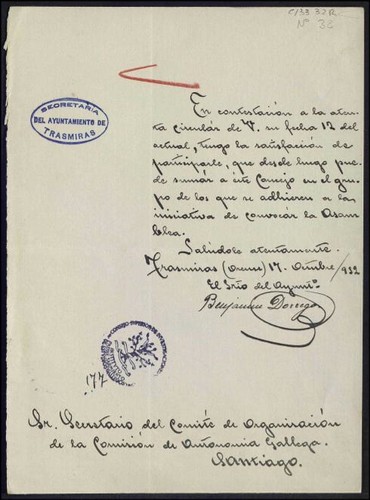 C/38-32R
Nº 33
SECRETARIA
DEL AYUNTAMIENTO DE
TRASMIRAS
En contestación a la aten-
ta circular de V. su fecha 12 del
actual, tengo la satisfacción de
participarle, que desde luego pue-
de sumar a este Concejo en el gru-
po de los que se adhieren a la
iniciativa de convocar la Asam-
blea.
Salúdole atentamente.
Trasmiras (Orense) 17, Octubre/932
El Srio del Ayuntº
Benjamin Dorrego
177
Sr. Secretario del Comité de Organización
de la Comisión de Autonomia Gallega.
Santiago.